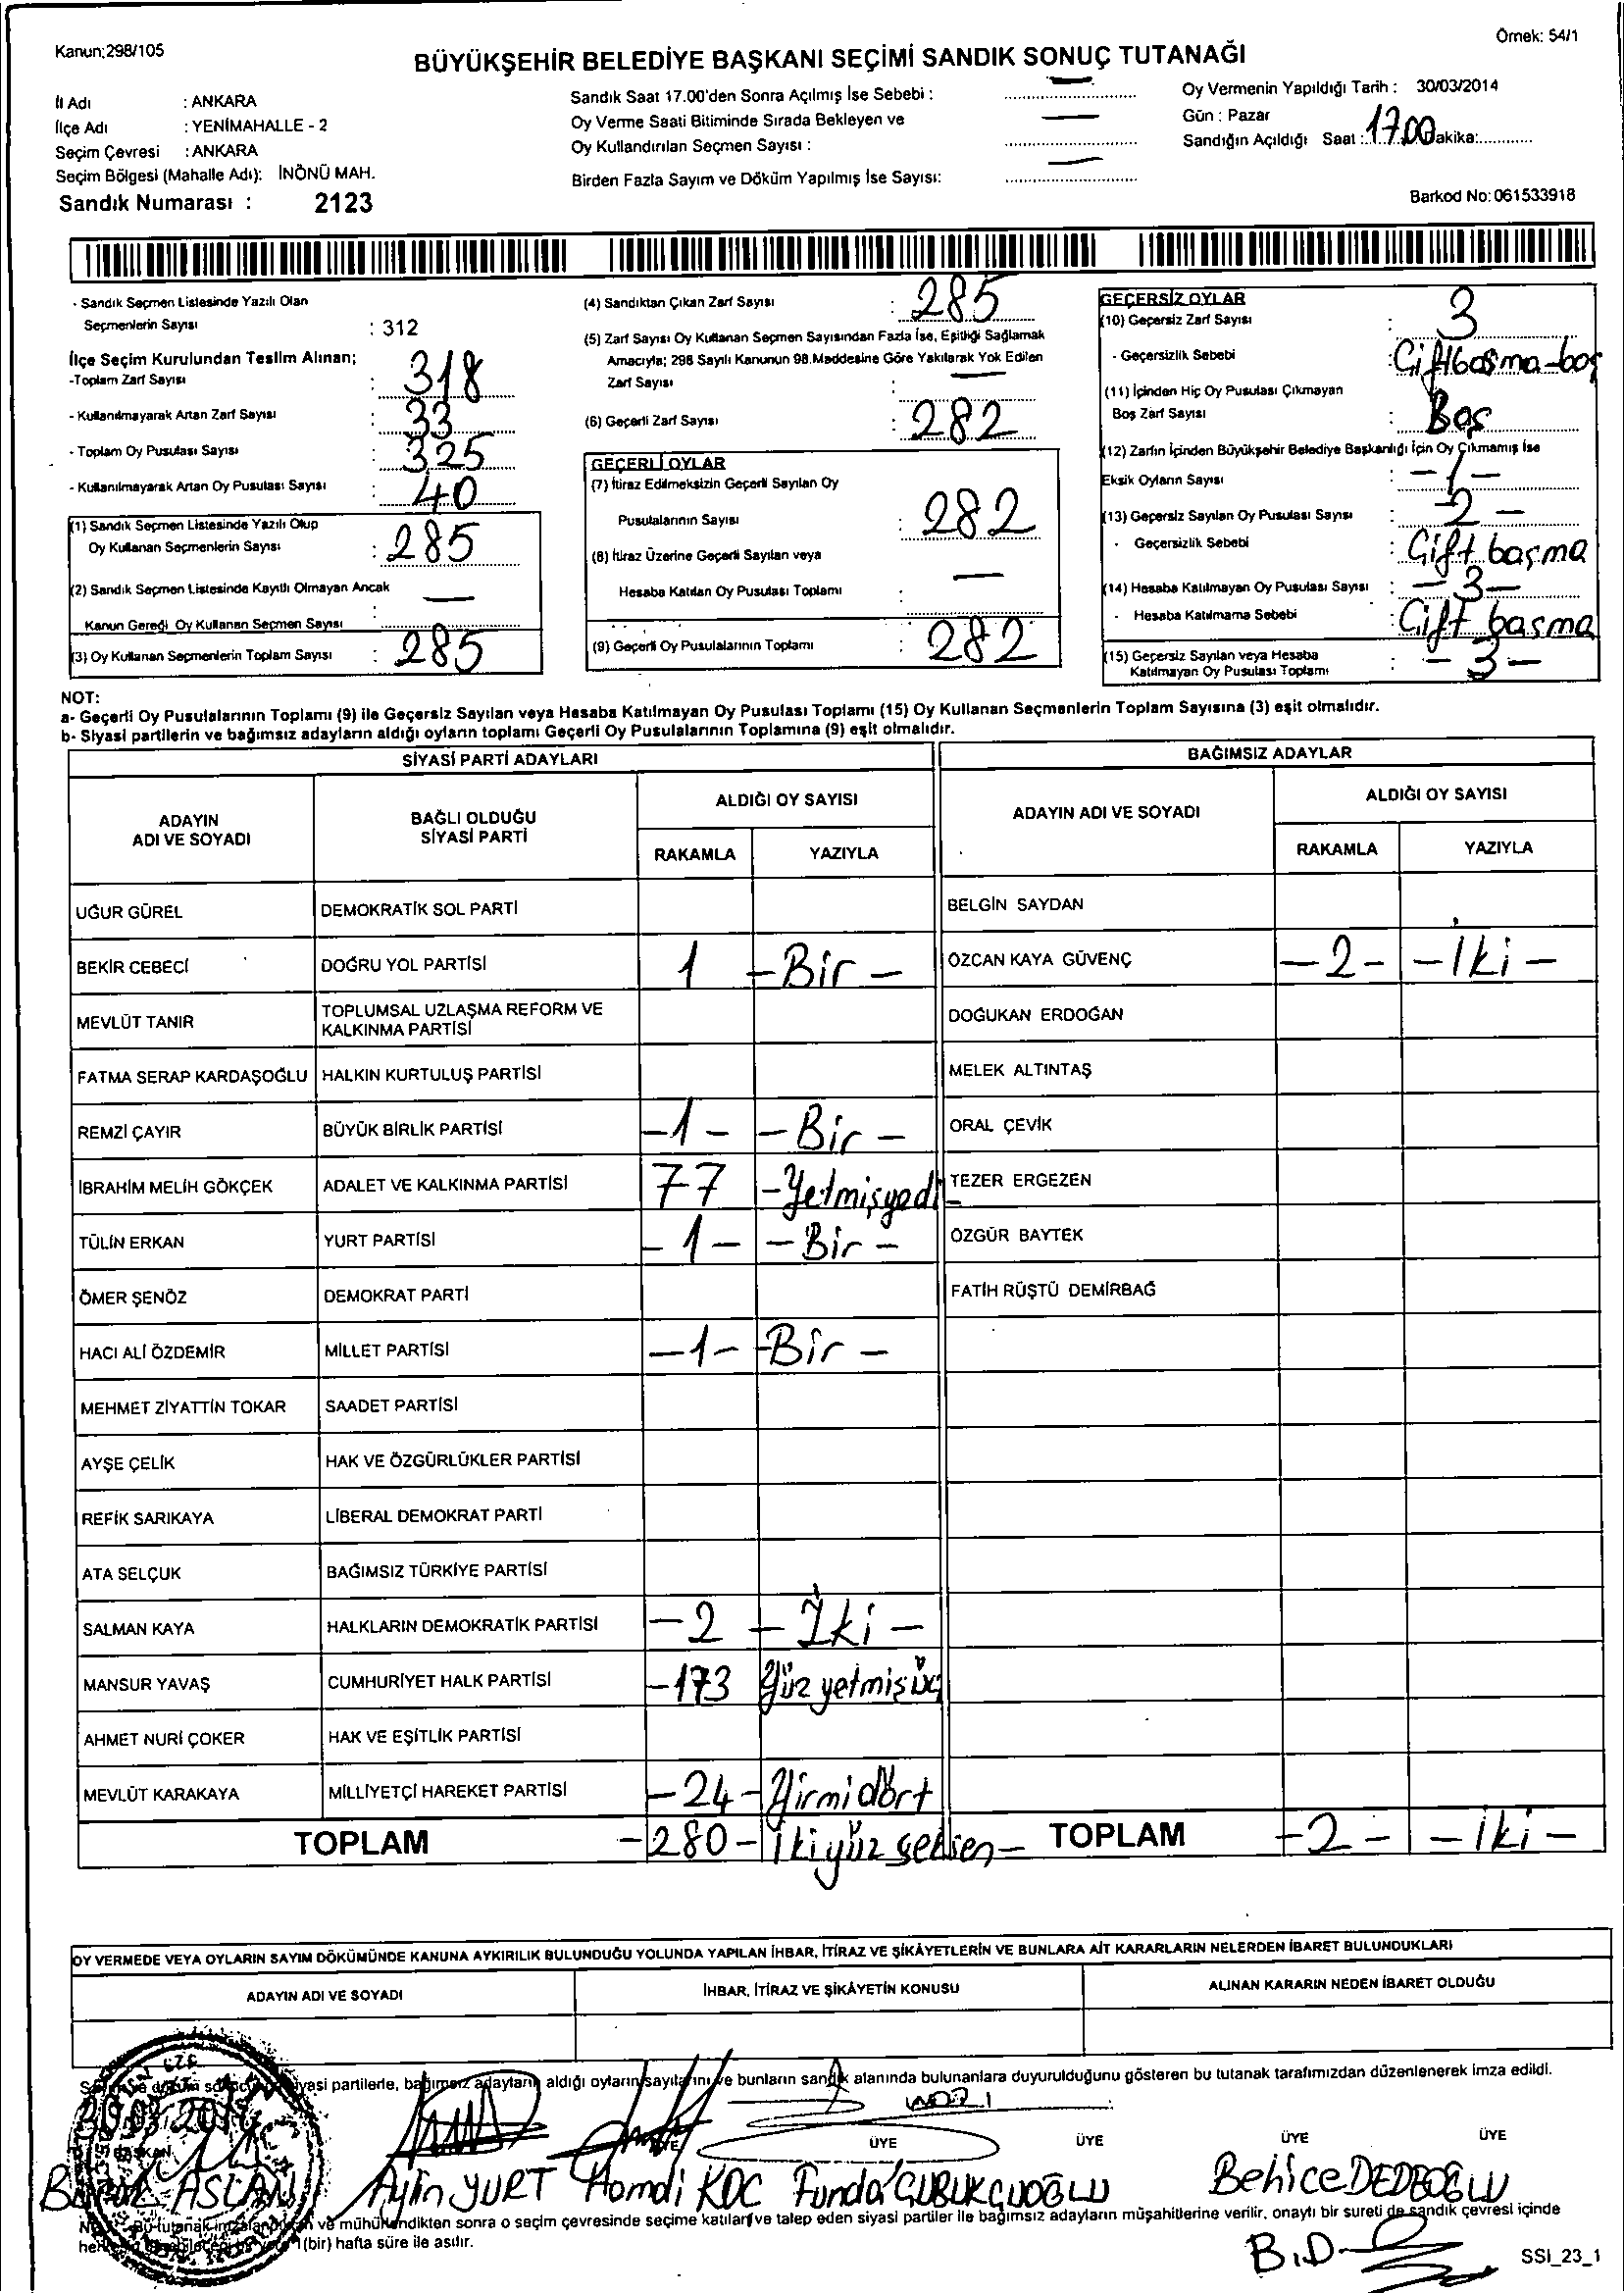 Kanun:298/105
Örnek: 54/1
BÜYÜKŞEHİR BELEDİYE BAŞKANI SEÇİMİ SANDIK SONUÇ TUTANAĞI
İl Adı : ANKARA
İlçe Adı : YENİMAHALLE - 2
Seçim Çevresi : ANKARA
Seçim Bölgesi (Mahalle Adı): İNÖNÜ MAH.
Sandık Numarası : 2123
Sandık Saat 17.00'den Sonra Açılmış İse Sebebi : —
Oy Verme Saati Bitiminde Sırada Bekleyen ve
Oy Kullandırılan Seçmen Sayısı : —
Birden Fazla Sayım ve Döküm Yapılmış İse Sayısı: —
Oy Vermenin Yapıldığı Tarih : 30/03/2014
Gün : Pazar
Sandığın Açıldığı Saat : 17.00 Dakika:
Barkod No:061533918
- Sandık Seçmen Listesinde Yazılı Olan
Seçmenlerin Sayısı : 312
İlçe Seçim Kurulundan Teslim Alınan;
-Toplam Zarf Sayısı : 318
- Kullanılmayarak Artan Zarf Sayısı : 33
- Toplam Oy Pusulası Sayısı : 325
- Kullanılmayarak Artan Oy Pusulası Sayısı : 40
(1) Sandık Seçmen Listesinde Yazılı Olup
Oy Kullanan Seçmenlerin Sayısı : 285
(2) Sandık Seçmen Listesinde Kayıtlı Olmayan Ancak
Kanun Gereği Oy Kullanan Seçmen Sayısı : —
(3) Oy Kullanan Seçmenlerin Toplam Sayısı : 285
(4) Sandıktan Çıkan Zarf Sayısı : 285
(5) Zarf Sayısı Oy Kullanan Seçmen Sayısından Fazla İse, Eşitliği Sağlamak
Amacıyla; 298 Sayılı Kanunun 98.Maddesine Göre Yakılarak Yok Edilen
Zarf Sayısı : —
(6) Geçerli Zarf Sayısı : 282
GEÇERLİ OYLAR
(7) İtiraz Edilmeksizin Geçerli Sayılan Oy
Pusulalarının Sayısı : 282
(8) İtiraz Üzerine Geçerli Sayılan veya
Hesaba Katılan Oy Pusulası Toplamı : —
(9) Geçerli Oy Pusulalarının Toplamı : 282
GEÇERSİZ OYLAR
(10) Geçersiz Zarf Sayısı : 3
- Geçersizlik Sebebi : Çift basma-boş
(11) İçinden Hiç Oy Pusulası Çıkmayan
Boş Zarf Sayısı : Boş
(12) Zarfın İçinden Büyükşehir Belediye Başkanlığı İçin Oy Çıkmamış İse
Eksik Oyların Sayısı : -1-
(13) Geçersiz Sayılan Oy Pusulası Sayısı : -2-
- Geçersizlik Sebebi : Çift basma
(14) Hesaba Katılmayan Oy Pusulası Sayısı : -3-
- Hesaba Katılmama Sebebi : Çift basma
(15) Geçersiz Sayılan veya Hesaba
Katılmayan Oy Pusulası Toplamı : -3-
NOT:
a- Geçerli Oy Pusulalarının Toplamı (9) ile Geçersiz Sayılan veya Hesaba Katılmayan Oy Pusulası Toplamı (15) Oy Kullanan Seçmenlerin Toplam Sayısına (3) eşit olmalıdır.
b- Siyasi partilerin ve bağımsız adayların aldığı oyların toplamı Geçerli Oy Pusulalarının Toplamına (9) eşit olmalıdır.
SİYASİ PARTİ ADAYLARI
ADAYIN ADI VE SOYADI BAĞLI OLDUĞU SİYASİ PARTİ ALDIĞI OY SAYISI
RAKAMLA YAZIYLA
UĞUR GÜREL DEMOKRATİK SOL PARTİ
BEKİR CEBECİ DOĞRU YOL PARTİSİ 1 -Bir-
MEVLÜT TANIR TOPLUMSAL UZLAŞMA REFORM VE KALKINMA PARTİSİ
FATMA SERAP KARDAŞOĞLU HALKIN KURTULUŞ PARTİSİ
REMZİ ÇAYIR BÜYÜK BİRLİK PARTİSİ -1- -Bir-
İBRAHİM MELİH GÖKÇEK ADALET VE KALKINMA PARTİSİ 77 -Yetmişyedi-
TÜLİN ERKAN YURT PARTİSİ -1- -Bir-
ÖMER ŞENÖZ DEMOKRAT PARTİ
HACI ALİ ÖZDEMİR MİLLET PARTİSİ -1- -Bir-
MEHMET ZİYATTİN TOKAR SAADET PARTİSİ
AYŞE ÇELİK HAK VE ÖZGÜRLÜKLER PARTİSİ
REFİK SARIKAYA LİBERAL DEMOKRAT PARTİ
ATA SELÇUK BAĞIMSIZ TÜRKİYE PARTİSİ
SALMAN KAYA HALKLARIN DEMOKRATİK PARTİSİ -2 -İki-
MANSUR YAVAŞ CUMHURİYET HALK PARTİSİ -173 Yüz yetmişüç
AHMET NURİ ÇOKER HAK VE EŞİTLİK PARTİSİ
MEVLÜT KARAKAYA MİLLİYETÇİ HAREKET PARTİSİ -24- Yirmidört
TOPLAM -280- İkiyüz seksen-
BAĞIMSIZ ADAYLAR
ADAYIN ADI VE SOYADI ALDIĞI OY SAYISI
RAKAMLA YAZIYLA
BELGİN SAYDAN
ÖZCAN KAYA GÜVENÇ -2- -İki-
DOĞUKAN ERDOĞAN
MELEK ALTINTAŞ
ORAL ÇEVİK
TEZER ERGEZEN
ÖZGÜR BAYTEK
FATİH RÜŞTÜ DEMİRBAĞ
TOPLAM -2- -iki-
OY VERMEDE VEYA OYLARIN SAYIM DÖKÜMÜNDE KANUNA AYKIRILIK BULUNDUĞU YOLUNDA YAPILAN İHBAR, İTİRAZ VE ŞİKÂYETLERİN VE BUNLARA AİT KARARLARIN NELERDEN İBARET BULUNDUKLARI
ADAYIN ADI VE SOYADI İHBAR, İTİRAZ VE ŞİKÂYETİN KONUSU ALINAN KARARIN NEDEN İBARET OLDUĞU
siyasi partilerle, bağımsız adayların aldığı oyların sayılarını ve bunların sandık alanında bulunanlara duyurulduğunu gösteren bu tutanak tarafımızdan düzenlenerek imza edildi.
30.03.2014
BAŞKAN ÜYE ÜYE ÜYE ÜYE
ASLAN Aylin YURT Hamdi KOÇ Funda ÇUBUKÇUOĞLU Behice DEDEOĞLU
ve mühürlendikten sonra o seçim çevresinde seçime katılan ve talep eden siyasi partiler ile bağımsız adayların müşahitlerine verilir, onaylı bir sureti de sandık çevresi içinde
(bir) hafta süre ile asılır.
B.D
SSI_23_1